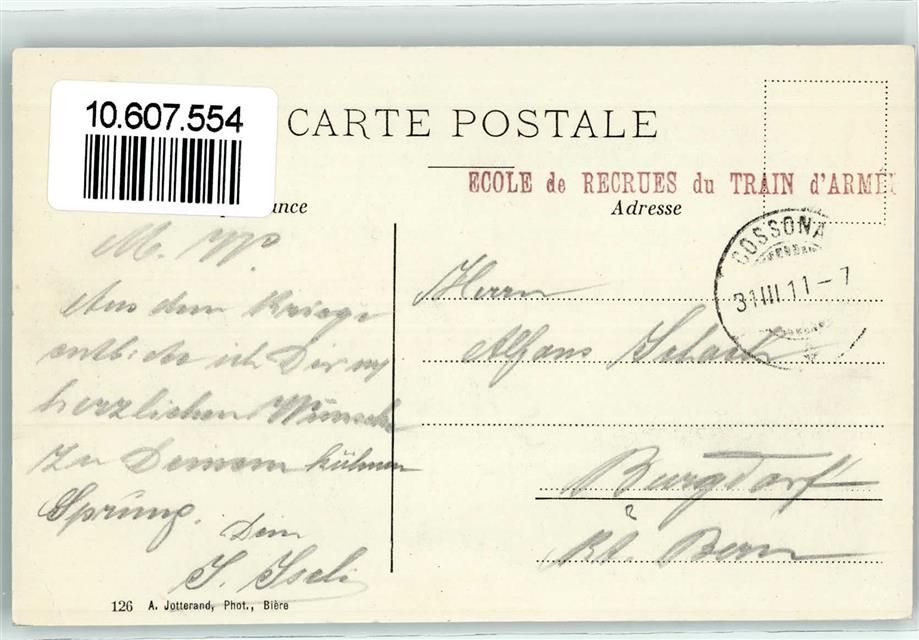 10.607.554
CARTE POSTALE
ECOLE de RECRUES du TRAIN d'ARMÉE
Adresse
COSSONA
31 III 11-7
M.
Aus dem Kriege
ich Dir
herzlichen Wünsche
zu Deinem kühnen
Sprung.
Dein
Herrn
Alfons
Burgdorf
Kt. Bern
126 A. Jotterand, Phot., Bière